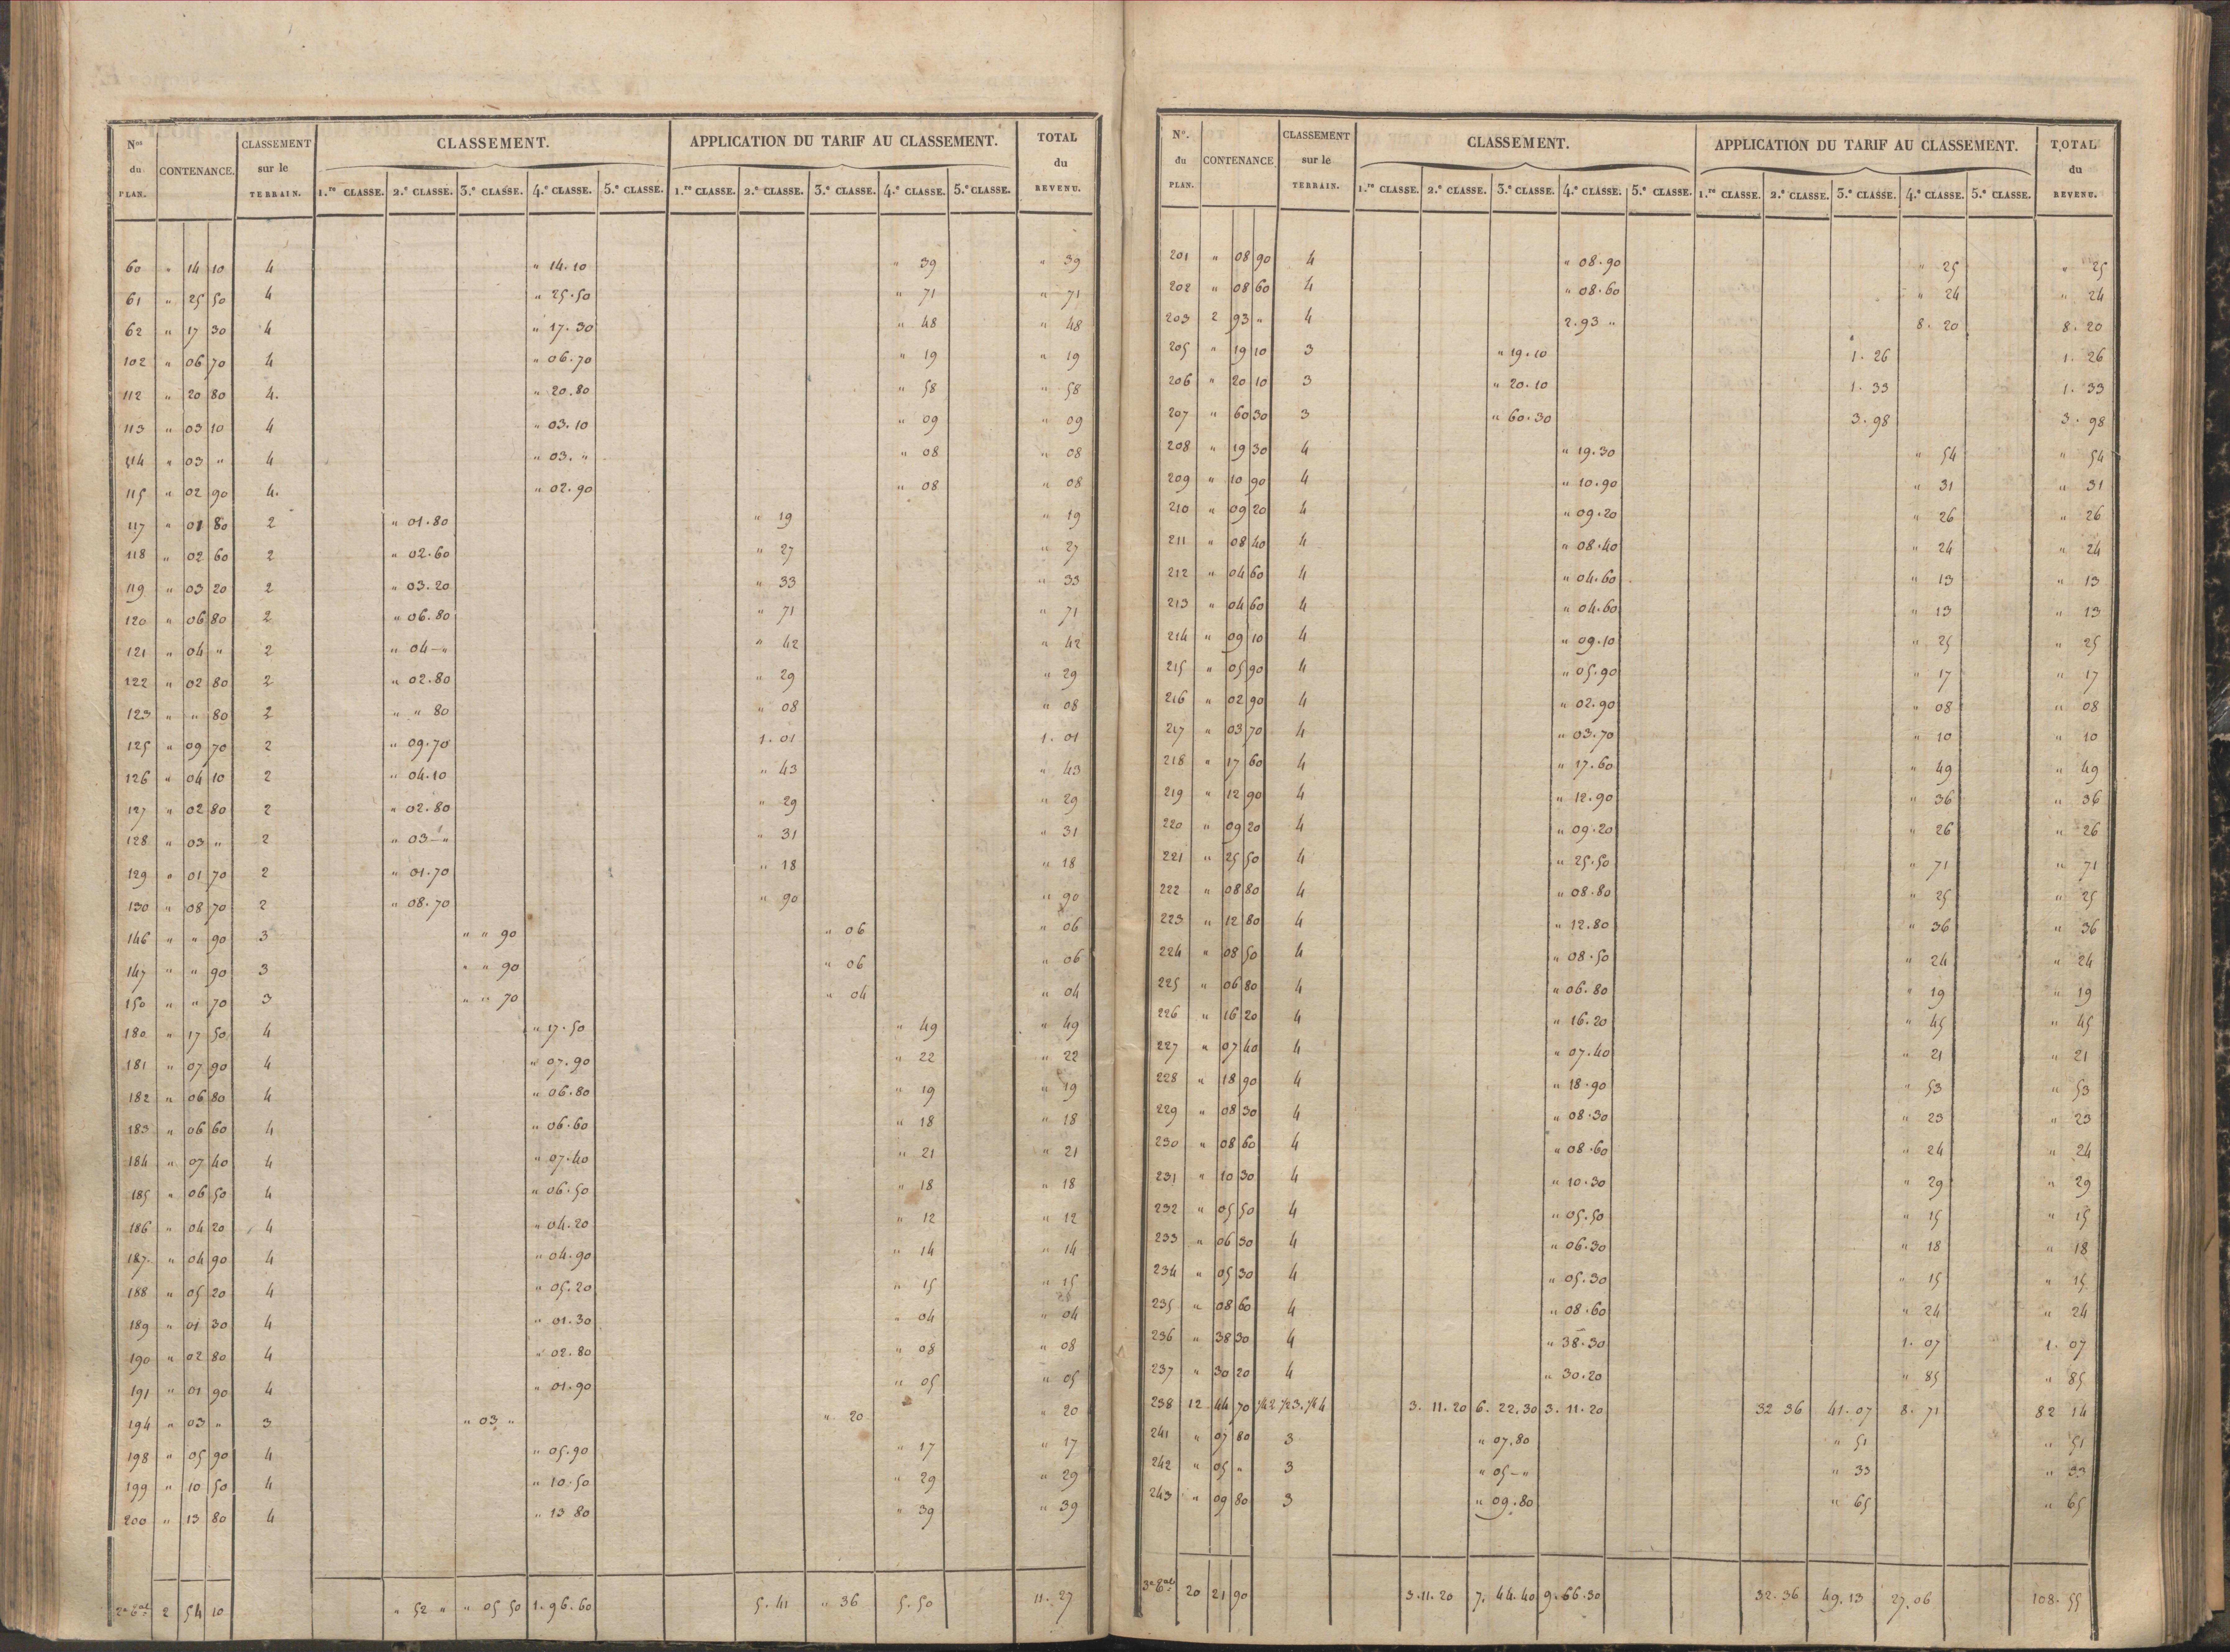 Nos du PLAN. CONTENANCE. CLASSEMENT sur le TERRAIN. CLASSEMENT. APPLICATION DU TARIF AU CLASSEMENT. TOTAL du REVENU.
1.re CLASSE. 2.e CLASSE. 3.e CLASSE. 4.e CLASSE. 5.e CLASSE. 1.re CLASSE. 2.e CLASSE. 3.e CLASSE. 4.e CLASSE. 5.e CLASSE.
60 " 14 10 4 " 14.10 " 39 " 39
61 " 25 50 4 " 25.50 " 71 " 71
62 " 17 30 4 " 17.30 " 48 " 48
102 " 06 70 4 " 06.70 " 19 " 19
112 " 20 80 4. " 20.80 " 58 " 58
113 " 03 10 4 " 03.10 " 09 " 09
114 " 03 " 4 " 03. " " 08 " 08
115 " 02 90 4. " 02.90 " 08 " 08
117 " 01 80 2 " 01.80 " 19 " 19
118 " 02 60 2 " 02.60 " 27 " 27
119 " 03 20 2 " 03.20 " 33 " 33
120 " 06 80 2 " 06.80 " 71 " 71
121 " 04 " 2 " 04-" " 42 " 42
122 " 02 80 2 " 02.80 " 29 " 29
123 " " 80 2 " " 80 " 08 " 08
125 " 09 70 2 " 09.70 1.01 1.01
126 " 04 10 2 " 04.10 " 43 " 43
127 " 02 80 2 " 02.80 " 29 " 29
128 " 03 " 2 " 03-" " 31 " 31
129 " 01 70 2 " 01.70 " 18 " 18
130 " 08 70 2 " 08.70 " 90 " 90
146 " " 90 3 " " 90 " 06 " 06
147 " " 90 3 " " 90 " 06 " 06
150 " " 70 3 " " 70 " 04 " 04
180 " 17 50 4 " 17.50 " 49 " 49
181 " 07 90 4 " 07.90 " 22 " 22
182 " 06 80 4 " 06.80 " 19 " 19
183 " 06 60 4 " 06.60 " 18 " 18
184 " 07 40 4 " 07.40 " 21 " 21
185 " 06 50 4 " 06.50 " 18 " 18
186 " 04 20 4 " 04.20 " 12 " 12
187. " 04 90 4 " 04.90 " 14 " 14
188 " 05 20 4 " 05.20 " 15 " 15
189 " 01 30 4 " 01.30 " 04 " 04
190 " 02 80 4 " 02.80 " 08 " 08
191 " 01 90 4 " 01.90 " 05 " 05
194 " 03 " 3 " 03 " " 20 " 20
198 " 05 90 4 " 05.90 " 17 " 17
199 " 10 50 4 " 10.50 " 29 " 29
200 " 13 80 4 " 13 80 " 39 " 39
2e Tal 2 54 10 " 52 " " 05 50 1.96.60 5.41 " 36 5.50 11.27
No. du PLAN. CONTENANCE CLASSEMENT sur le TERRAIN. CLASSEMENT. APPLICATION DU TARIF AU CLASSEMENT. TOTAL du REVENU.
1.re CLASSE. 2.e CLASSE. 3.e CLASSE. 4.e CLASSE. 5.e CLASSE. 1.re CLASSE. 2.e CLASSE. 3.e CLASSE. 4.e CLASSE. 5.e CLASSE.
201 " 08 90 4 " 08.90 " 25 " 25
202 " 08 60 4 " 08.60 " 24 " 24
203 2 93 " 4 2.93 " 8.20 8.20
205 " 19 10 3 " 19.10 1.26 1.26
206 " 20 10 3 " 20.10 1.33 1.33
207 " 60 30 3 " 60.30 3.98 3.98
208 " 19 30 4 " 19.30 " 54 " 54
209 " 10 90 4 " 10.90 " 31 " 31
210 " 09 20 4 " 09.20 " 26 " 26
211 " 08 40 4 " 08.40 " 24 " 24
212 " 04 60 4 " 04.60 " 13 " 13
213 " 04 60 4 " 04.60 " 13 " 13
214 " 09 10 4 " 09.10 " 25 " 25
215 " 05 90 4 " 05.90 " 17 " 17
216 " 02 90 4 " 02.90 " 08 " 08
217 " 03 70 4 " 03.70 " 10 " 10
218 " 17 60 4 " 17.60 " 49 " 49
219 " 12 90 4 " 12.90 " 36 " 36
220 " 09 20 4 " 09.20 " 26 " 26
221 " 25 50 4 " 25.50 " 71 " 71
222 " 08 80 4 " 08.80 " 25 " 25
223 " 12 80 4 " 12.80 " 36 " 36
224 " 08 50 4 " 08.50 " 24 " 24
225 " 06 80 4 " 06.80 " 19 " 19
226 " 16 20 4 " 16.20 " 45 " 45
227 " 07 40 4 " 07.40 " 21 " 21
228 " 18 90 4 " 18.90 " 53 " 53
229 " 08 30 4 " 08.30 " 23 " 23
230 " 08 60 4 " 08.60 " 24 " 24
231 " 10 30 4 " 10.30 " 29 " 29
232 " 05 50 4 " 05.50 " 15 " 15
233 " 06 30 4 " 06.30 " 18 " 18
234 " 05 30 4 " 05.30 " 15 " 15
235 " 08 60 4 " 08.60 " 24 " 24
236 " 38 30 4 " 38.30 1.07 1.07
237 " 30 20 4 " 30.20 " 85 " 85
238 12 44 70 1/4 2 1/2 3. 1/4 4 3.11.20 6.22.30 3.11.20 32 36 41.07 8.71 82 14
241 " 07 80 3 " 07.80 " 51 " 51
242 " 05 " 3 " 05-" " 33 " 33
243 " 09 80 3 " 09.80 " 65 " 65
3e Tal 20 21 90 3.11.20 7.44.40 9.66.30 32.36 49.13 27.06 108.55